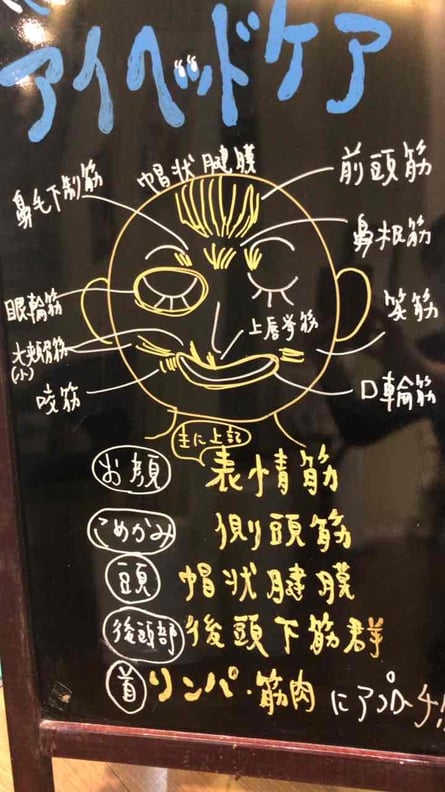 アイヘッドケア
帽状腱膜
前頭筋
鼻毛下制筋
鼻根筋
眼輪筋
笑筋
上唇挙筋
大頬骨筋
(小)
咬筋
口輪筋
主に上記
お顔 表情筋
こめかみ 側頭筋
頭 帽状腱膜
後頭部 後頭下筋群
首 リンパ・筋肉にアプローチ